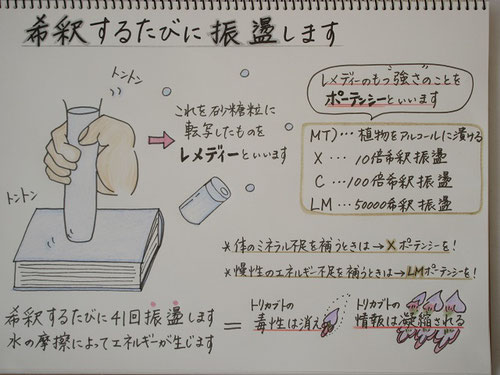 希釈するたびに振盪します
トントン
トントン
これを砂糖粒に
転写したものを
レメディーといいます
レメディーのもつ"強さ"のことを
ポーテンシーといいます
MT)…植物をアルコールに漬ける
X … 10倍希釈振盪
C … 100倍希釈振盪
LM … 50000希釈振盪
*体のミネラル不足を補うときは→Xポーテンシーを!
*慢性のエネルギー不足を補うときは→LMポーテンシーを!
希釈するたびに41回振盪します
水の摩擦によってエネルギーが生じます
=
トリカブトの
毒性は消え
トリカブトの
情報は凝縮される